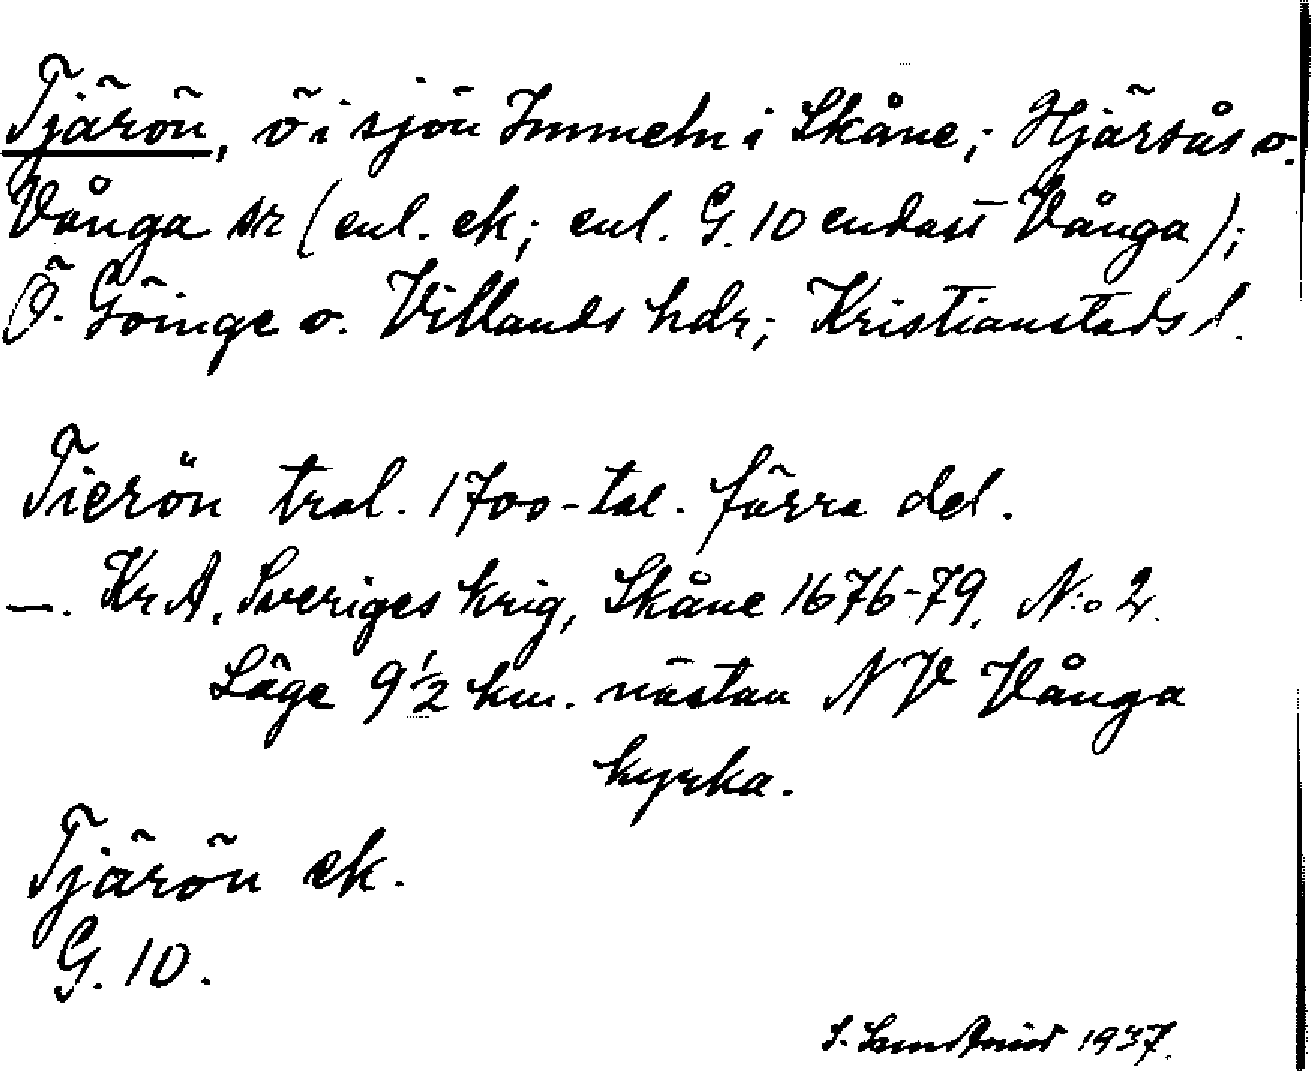 Tjärön, ö i sjön Immeln i Skåne; Hjärsås o.
Vånga sr (enl. ek; enl. G. 10 endast Vånga);
Ö. Göinge o. Villands hdr; Kristianstads l.
Tierön trol. 1700-tal. förra del.
—. Kr A, Sveriges krig, Skåne 1676-79, N:o 2.
Läge 9 1/2 km. nästan NV Vånga
kyrka.
Tjärön ek.
G. 10.
S. 1937.